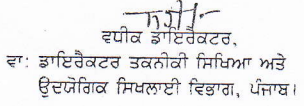 ਵਧੀਕ ਡਾਇਰੈਕਟਰ,
ਵਾ: ਡਾਇਰੈਕਟਰ ਤਕਨੀਕੀ ਸਿਖਿਆ ਅਤੇ
ਉਦਯੋਗਿਕ ਸਿਖਲਾਈ ਵਿਭਾਗ, ਪੰਜਾਬ।